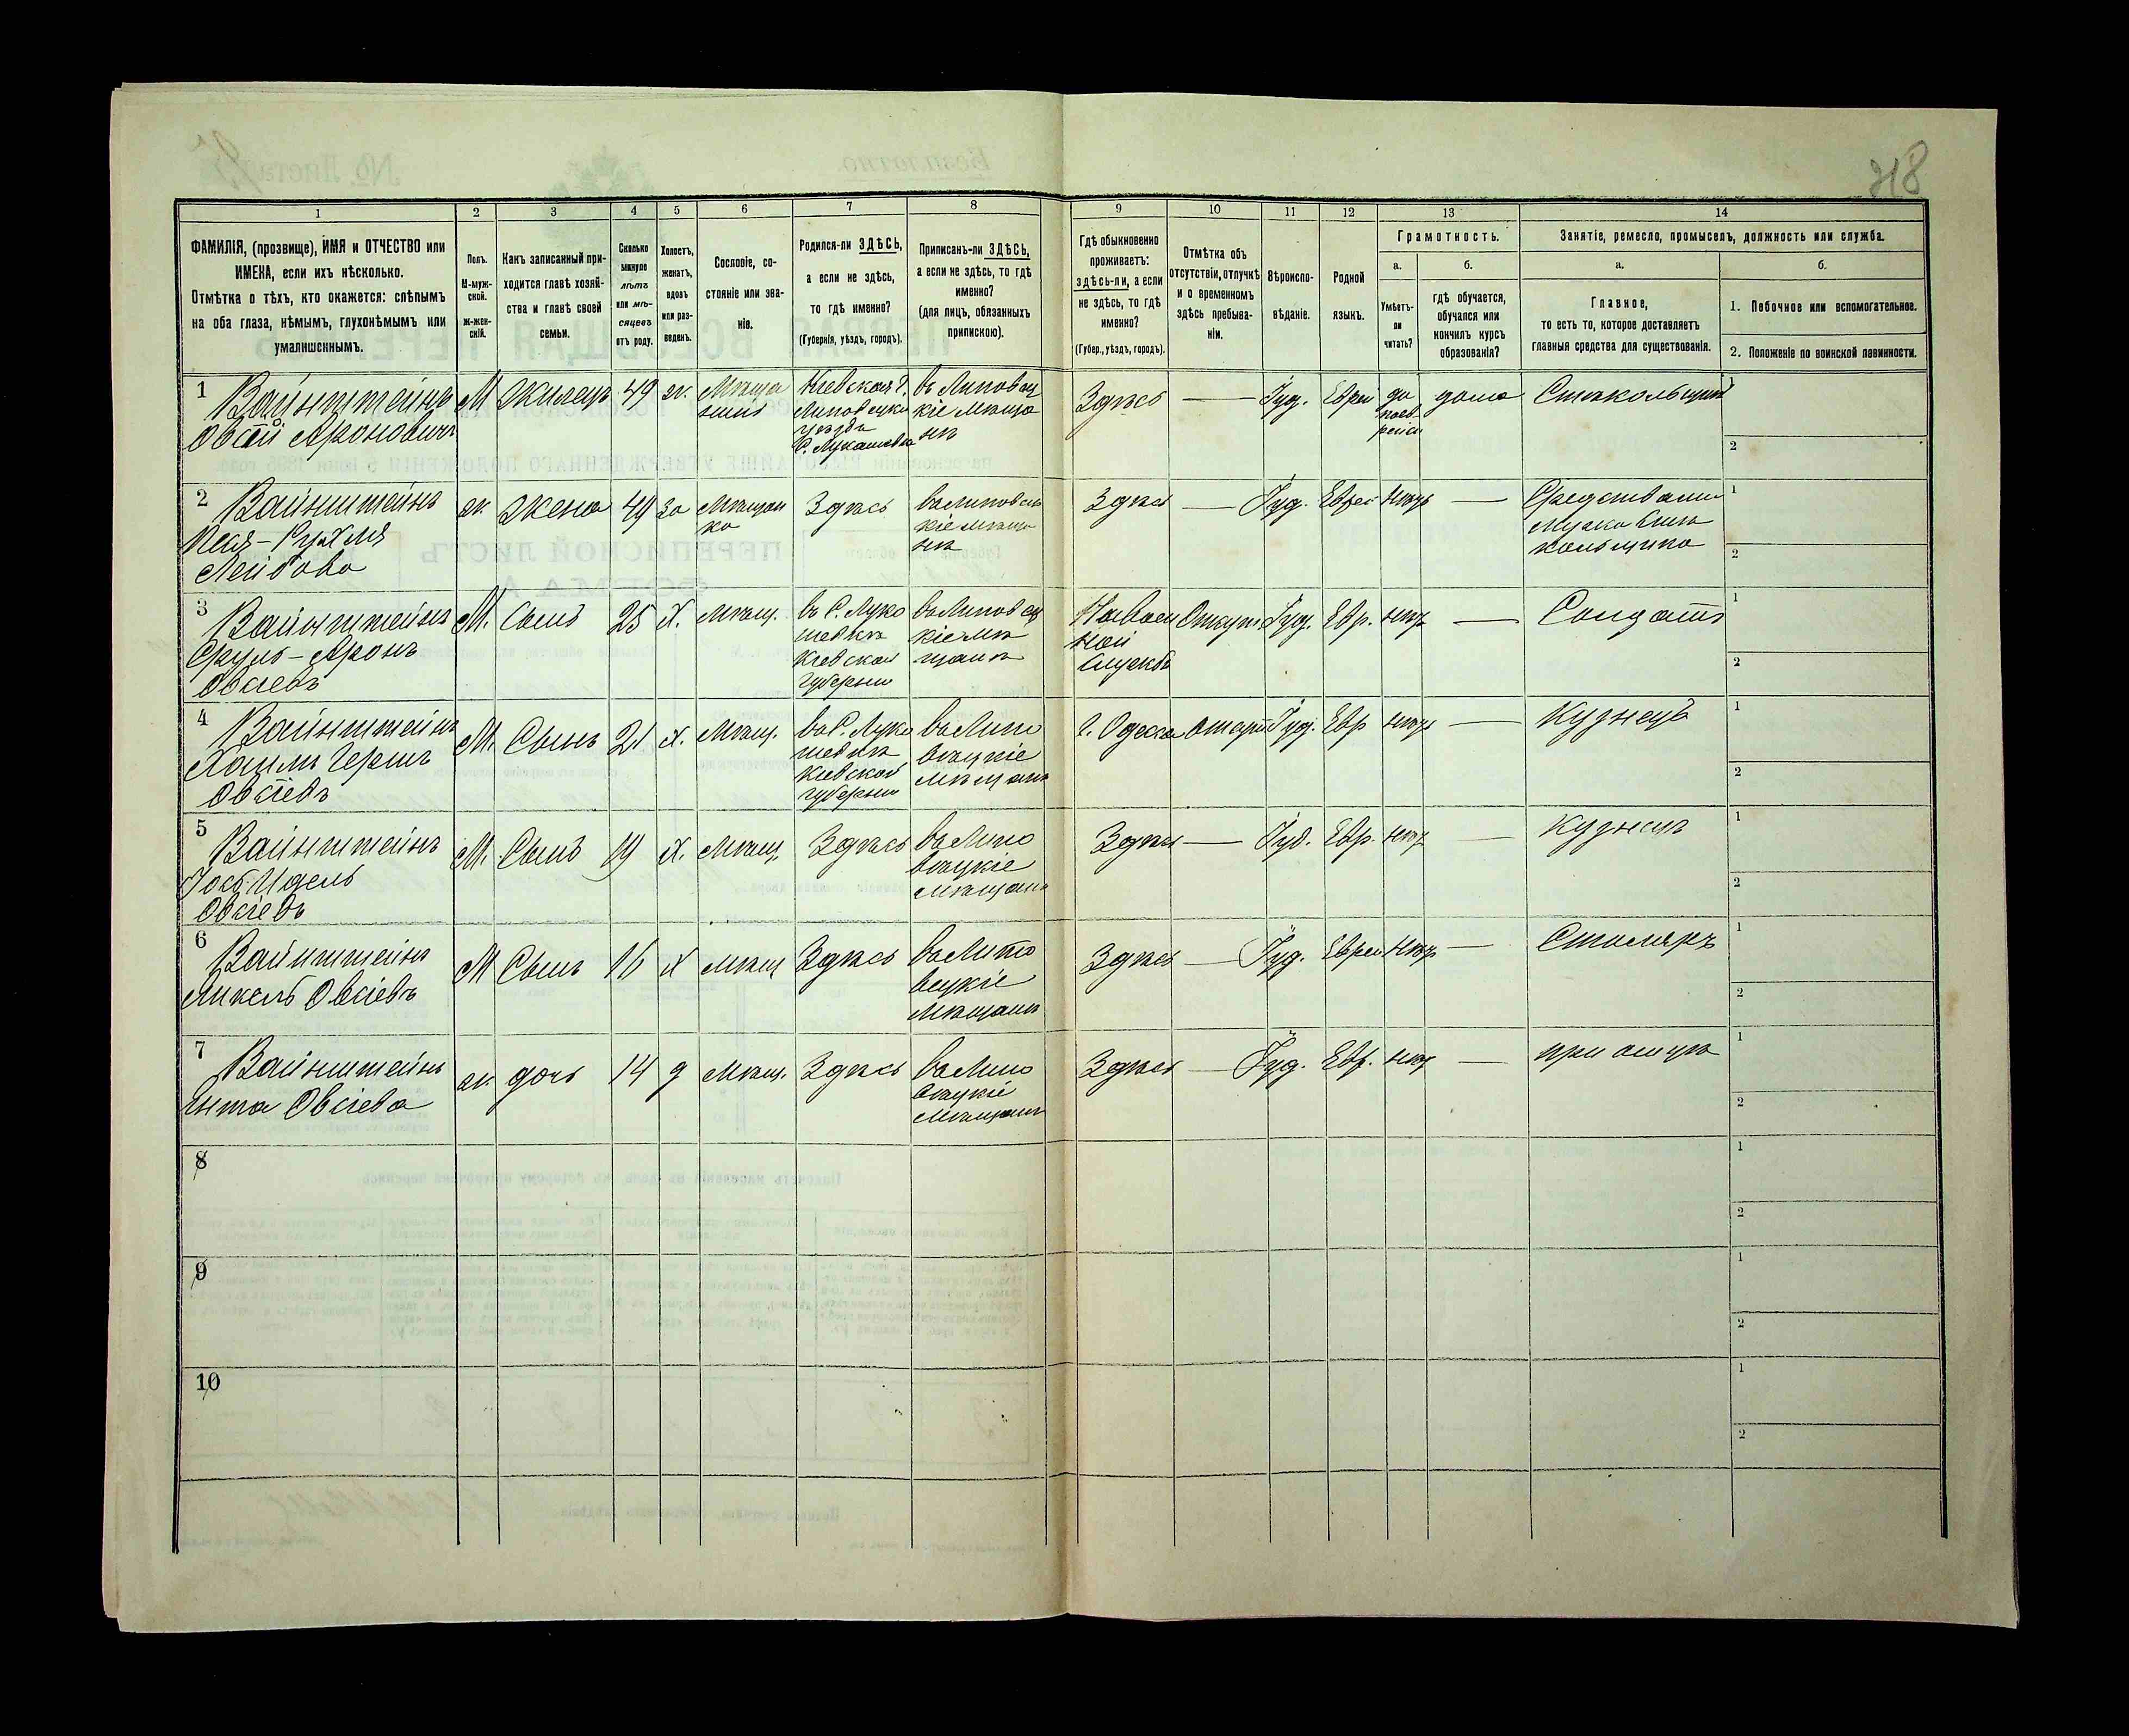 218
1 2 3 4 5 6 7 8 9 10 11 12 13 14
ФАМИЛІЯ, (прозвище), ИМЯ и ОТЧЕСТВО или
ИМЕНА, если ихъ нѣсколько.
Отмѣтка о тѣхъ, кто окажется: слѣпымъ
на оба глаза, нѣмымъ, глухонѣмымъ или
умалишеннымъ.
Полъ.
М-муж-
ской.
Ж-жен-
скій.
Какъ записанный при-
ходится главѣ хозяй-
ства и главѣ своей
семьи.
Сколько
минуло
лѣтъ
или мѣ-
сяцевъ
отъ роду.
Холостъ,
женатъ,
вдовъ
или раз-
веденъ.
Сословіе, со-
стояніе или зва-
ніе.
Родился-ли ЗДѢСЬ,
а если не здѣсь,
то гдѣ именно?
(Губернія, уѣздъ, городъ).
Приписанъ-ли ЗДѢСЬ,
а если не здѣсь, то гдѣ
именно?
(для лицъ, обязанныхъ
припискою).
Гдѣ обыкновенно
проживаетъ:
здѣсь-ли, а если
не здѣсь, то гдѣ
именно?
(Губер., уѣздъ, городъ).
Отмѣтка объ
отсутствіи, отлучкѣ
и о временномъ
здѣсь пребыва-
ніи.
Вѣроиспо-
вѣданіе.
Родной
языкъ.
Грамотность.
а.
Умѣетъ-
ли
читать?
б.
гдѣ обучается,
обучался или
кончилъ курсъ
образованія?
Занятіе, ремесло, промыселъ, должность или служба.
а.
Главное,
то есть то, которое доставляетъ
главныя средства для существованія.
б.
1. Побочное или вспомогательное.
2. Положеніе по воинской повинности.
1
Вайнштейнъ
Овсій Ароновичъ
М
Жилецъ
49
ж.
Мѣща
нинъ
Кіевская г.
Липовецка
уѣзда
С. Лукашевка
въ Липовец
кіе Мѣща
не
Здѣсь
—
Іуд.
Еврей
да
поев
рейски
дома
Стекольщикъ
2
2
Вайнштейнъ
Песя-Рухля
Лейбова
ж.
Жена
49
за
Мѣщан
ка
Здѣсь
въ Липовец
кіе мѣща
не
Здѣсь
—
Іуд.
Еврей
нѣтъ
—
Средствами
Мужа Сте
кольщика
1
2
3
Вайнштейнъ
Сруль-Аронъ
Овсіевъ
М.
Сынъ
25
Х.
Мѣщ.
въ С. Лука
шевкѣ
Кіевской
губерніи
въ Липовец
кіе мѣ
щане
На воен
ной
Службѣ
Отсут.
Іуд.
Евр.
нѣтъ
—
Солдатъ
1
2
4
Вайнштейнъ
Герш
Овсіевъ
М.
Сынъ
21
х.
Мѣщ.
въ С. Лука
шевкѣ
Кіевской
губерніи
въ Липо
вецкіе
мѣщане
г. Одесса
отсут
Іуд.
Евр
нѣтъ
—
Кузнецъ
1
2
5
Вайнштейнъ
Идель
Овсіевъ
М.
Сынъ
19
Х.
Мѣщ.
Здѣсь
въ Липо
вецкіе
мѣщане
Здѣсь
—
Іуд.
Евр.
нѣтъ
—
Кузнецъ
1
2
6
Вайнштейнъ
Овсіевъ
М
Сынъ
16
Х
мѣщ
Здѣсь
въ Липо
вецкіе
Мѣщане
Здѣсь
—
Іуд.
Еврей
Нѣтъ
—
Столяръ
1
2
7
Вайнштейнъ
Овсіева
ж.
дочь
14
д
мѣщ.
Здѣсь
въ Липо
вецкіе
Мѣщане
Здѣсь
—
Іуд.
Евр.
нѣт
—
при отцѣ
1
2
8
1
2
9
1
2
10
1
2